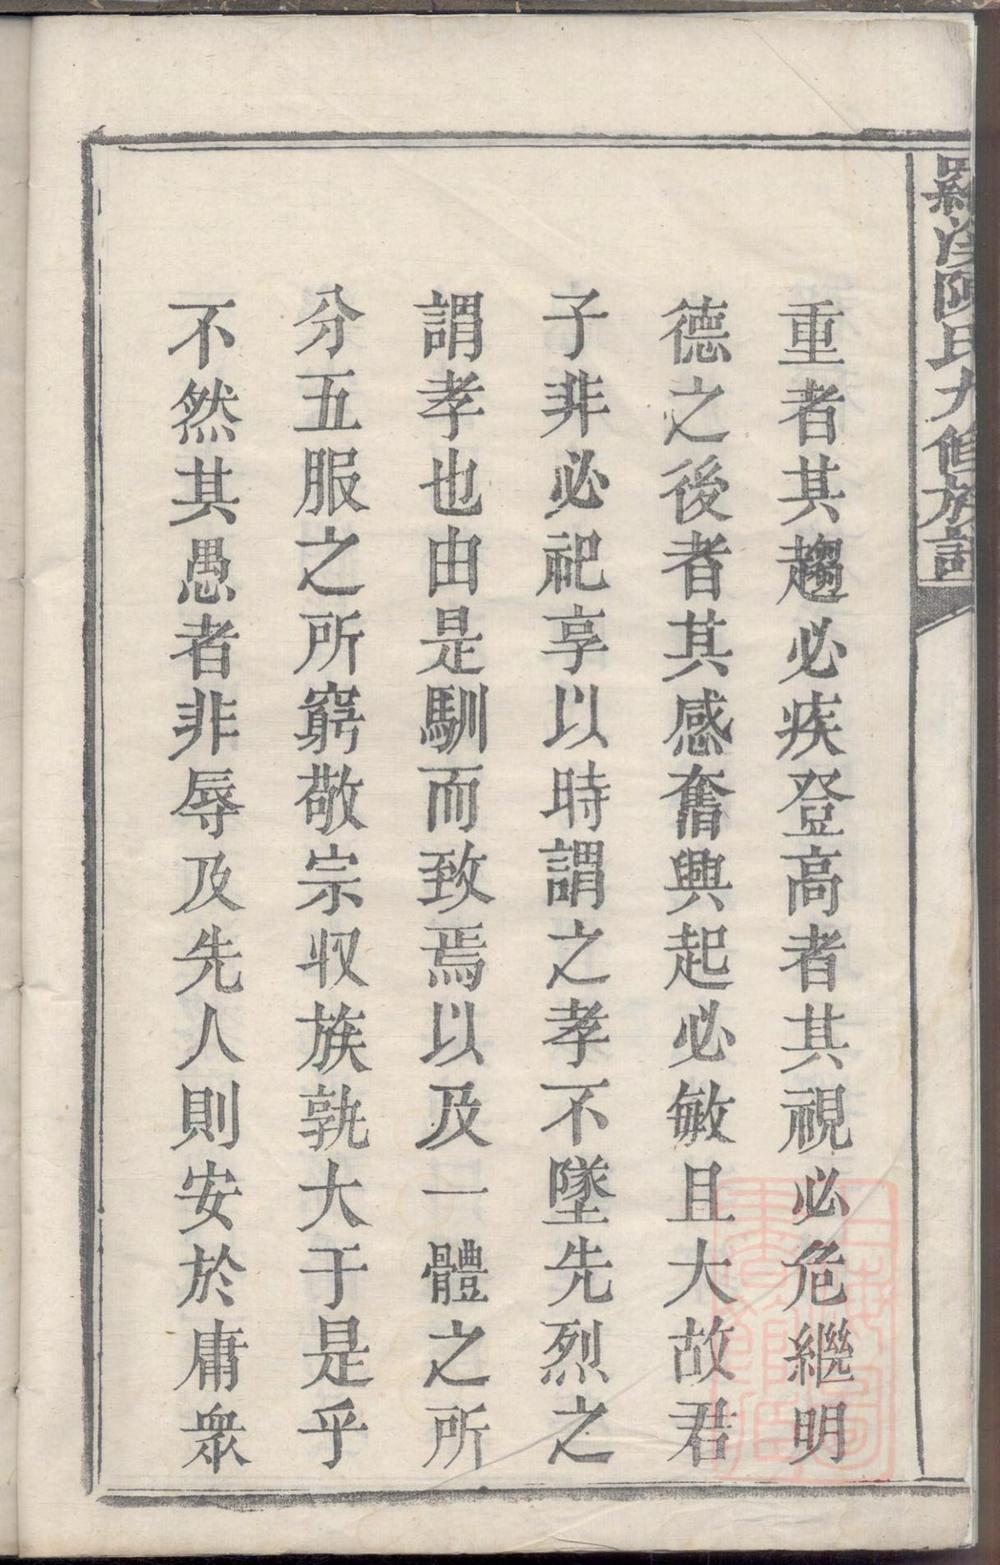 重者其趨必疾登高者其視必危繼明
德之後者其感奮興起必敏且大故君
子非必祀享以時謂之孝不墜先烈之
謂孝也由是馴而致焉以及一體之所
分五服之所窮敬宗収族孰大于是乎
不然其愚者非辱及先人則安於庸衆
陳氏九修族譜